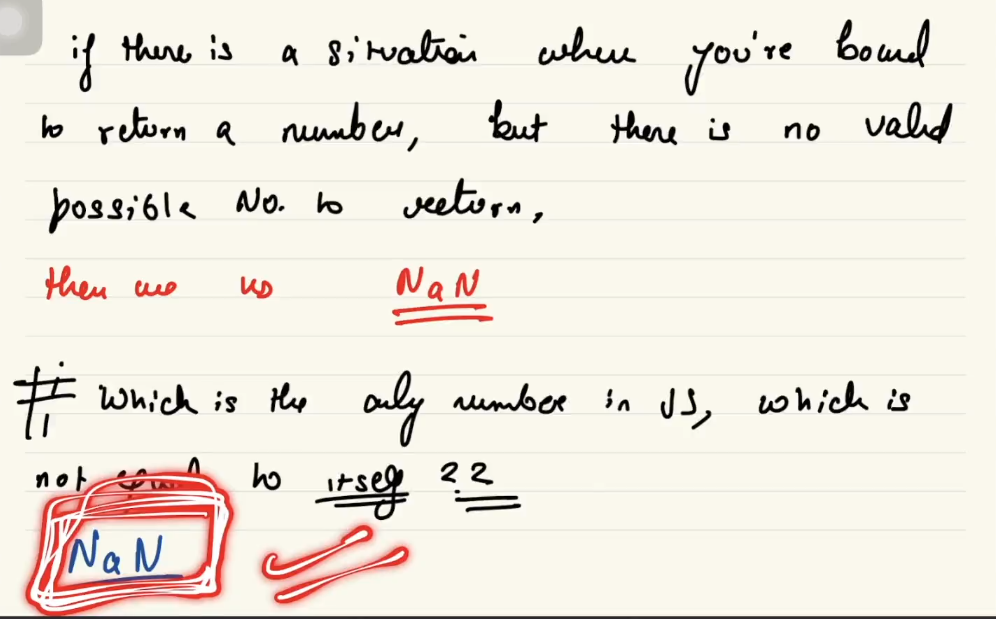 if there is a situation where you're bound
to return a number, but there is no valid
possible No. to return,
then we us NaN
# Which is the only number in JS, which is
not equal to itself ??
NaN